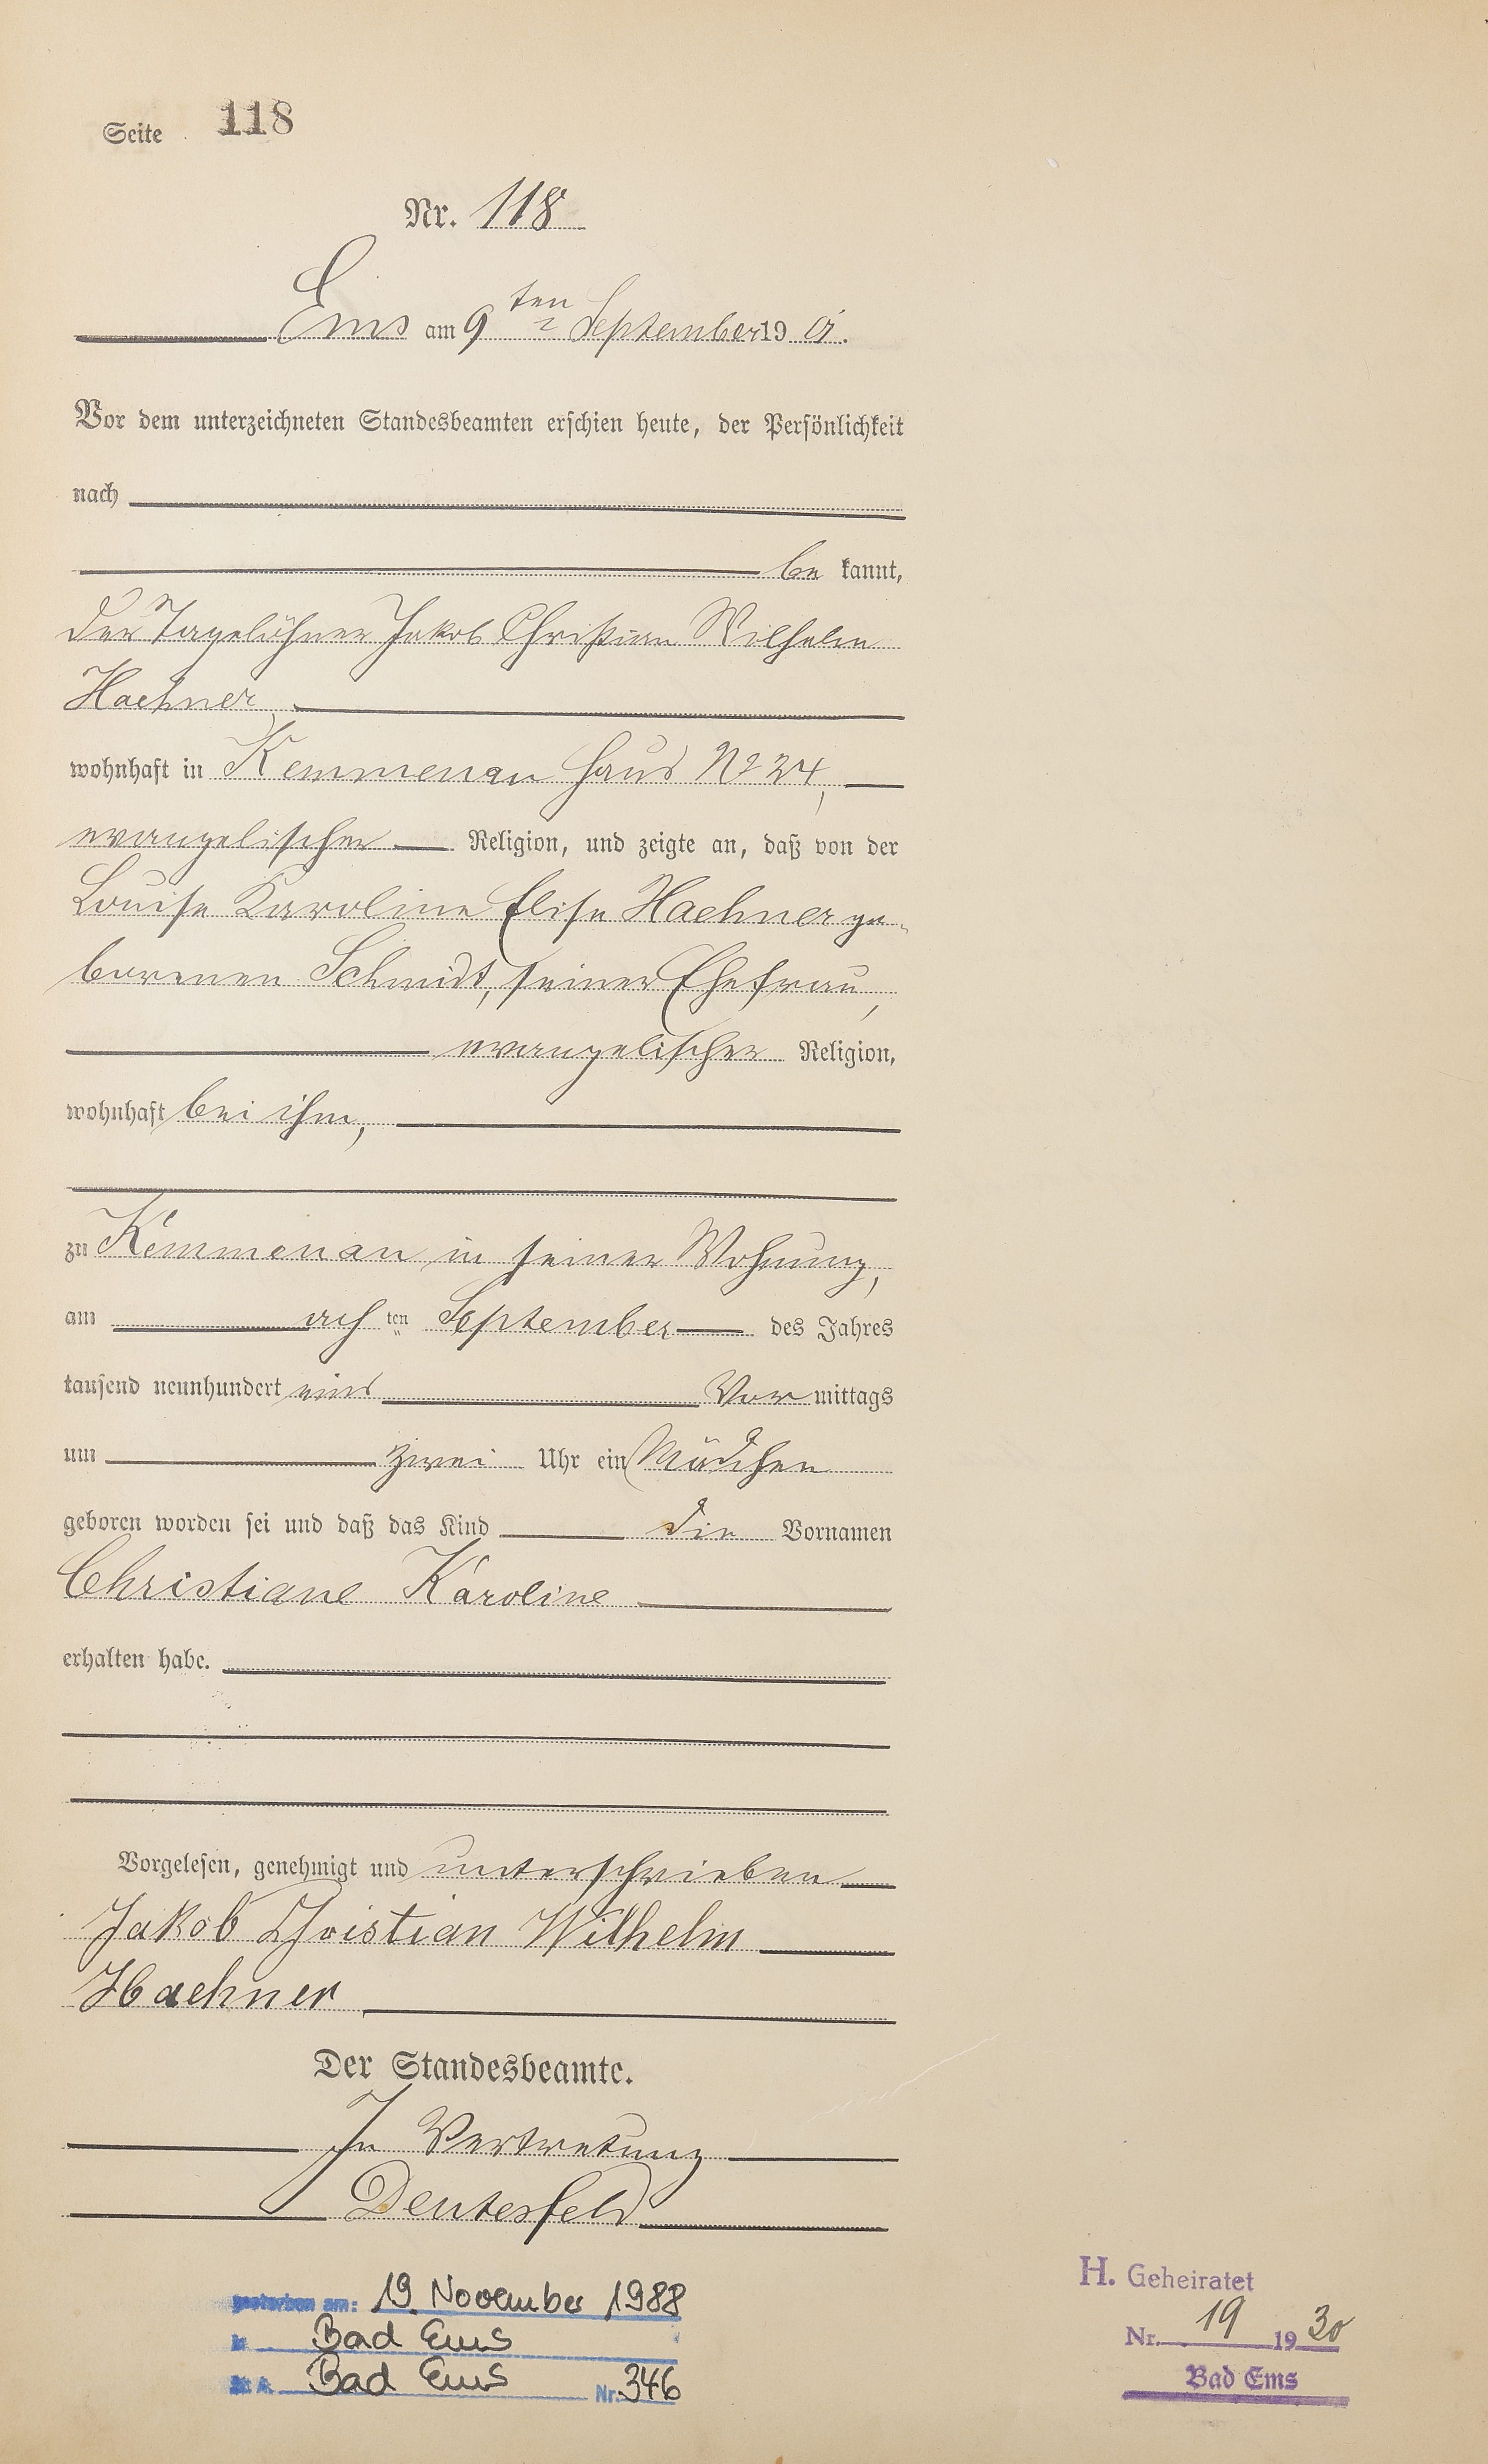 Seite 118
Nr. 118
Ems am 9ten September 19 01.
Vor dem unterzeichneten Standesbeamten erschien heute, der Persönlichkeit
nach
be kannt,
der Tagelöhner Jakob Christian Wilhelm
Haehner
wohnhaft in Kemmenau Haus No 24,
evangelischer Religion, und zeigte an, daß von der
Louise Karoline Elise Haehner ge-
borenen Schmidt, seiner Ehefrau,
evangelischer Religion,
wohnhaft bei ihm,
zu Kemmenau in seiner Wohnung,
am ach ten September des Jahres
tausend neunhundert eins Vor mittags
um zwei Uhr ein Mädchen
geboren worden sei und daß das Kind die Vornamen
Christiane Karoline
erhalten habe.
Vorgelesen, genehmigt und unterschrieben
Jakob Christian Wilhelm
Haehner
Der Standesbeamte.
In Vertretung
Deutesfeld
gestorben am: 19. November 1988
in Bad Ems
St. A. Bad Ems Nr. 346
H. Geheiratet
Nr. 19 1930
Bad Ems